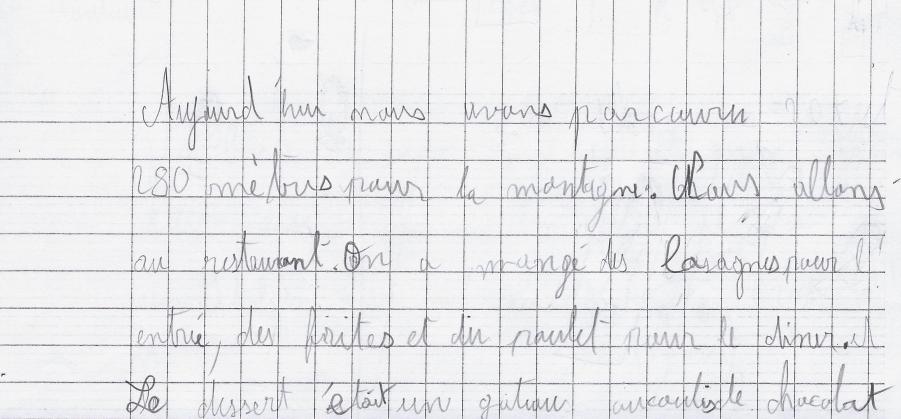 Aujourd'hui nous avons parcouru
280 mètres pour la montagne. Nous allons
au restaurant. On a mangé des lasagnes pour l'
entrée, des frites et du poulet pour le diner. et
Le dessert était un gateau au chocolat